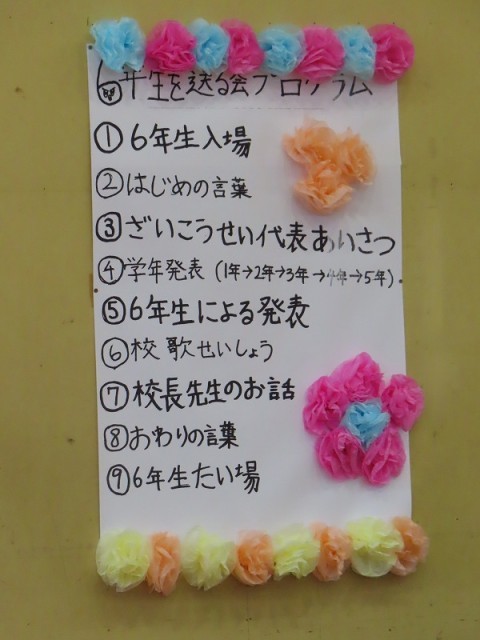 6年生を送る会プログラム
①6年生入場
②はじめの言葉
③ざいこうせい代表あいさつ
④学年発表(1年→2年→3年→4年→5年)
⑤6年生による発表
⑥校歌せいしょう
⑦校長先生のお話
⑧おわりの言葉
⑨6年生たい場